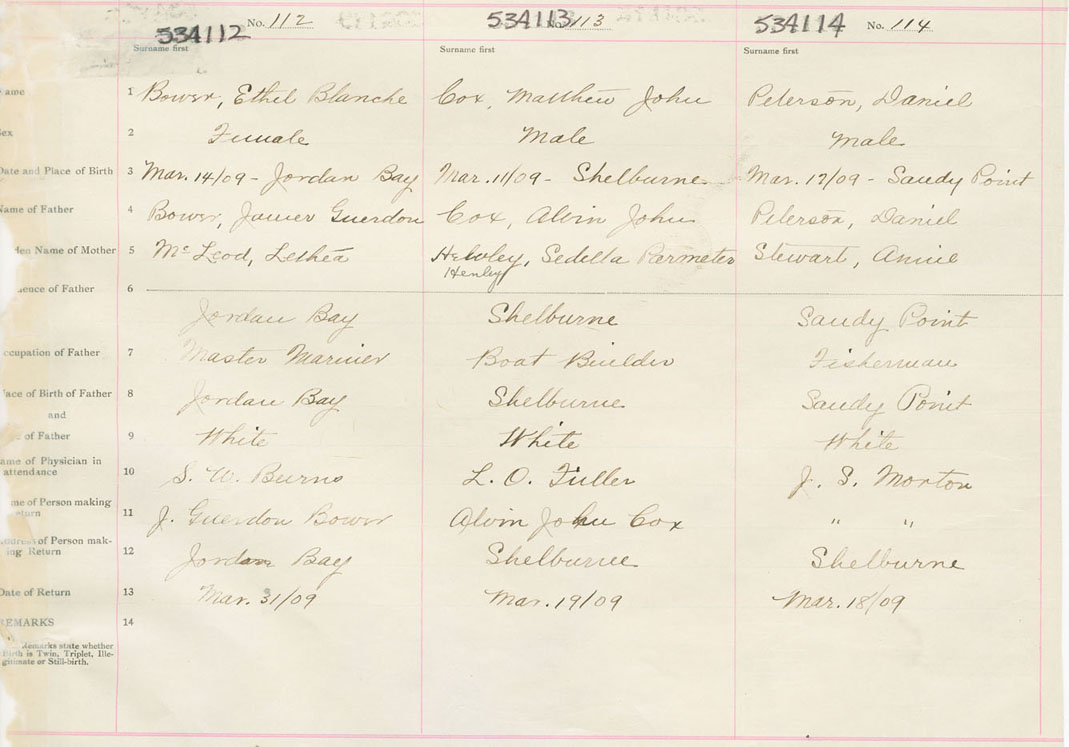 534112 No. 112 534113 No. 113 534114 No. 114
Surname first Surname first Surname first
ame 1 Bower, Ethel Blanche Cox, Matthew John Peterson, Daniel
ex 2 Female Male Male
Date and Place of Birth 3 Mar. 14/09 - Jordan Bay Mar. 11/09 - Shelburne Mar. 17/09 - Sandy Point
Name of Father 4 Bower, James Guerdon Cox, Alvin John Peterson, Daniel
den Name of Mother 5 Mc Leod, Lethea Hewley, Sedella Parmeter Stewart, Annie
Henley
ence of Father 6
Jordan Bay Shelburne Sandy Point
ccupation of Father 7 Master Mariner Boat Builder Fisherman
lace of Birth of Father 8 Jordan Bay Shelburne Sandy Point
and
of Father 9 White White White
ame of Physician in
attendance 10 S. W. Burns L. O. Fuller J. S. Morton
me of Person making
eturn 11 J. Guerdon Bower Alvin John Cox " "
ddress of Person mak-
ing Return 12 Jordan Bay Shelburne Shelburne
Date of Return 13 Mar. 31/09 Mar. 19/09 Mar. 18/09
REMARKS 14
Remarks state whether
Birth is Twin, Triplet, Ille-
gitimate or Still-birth.